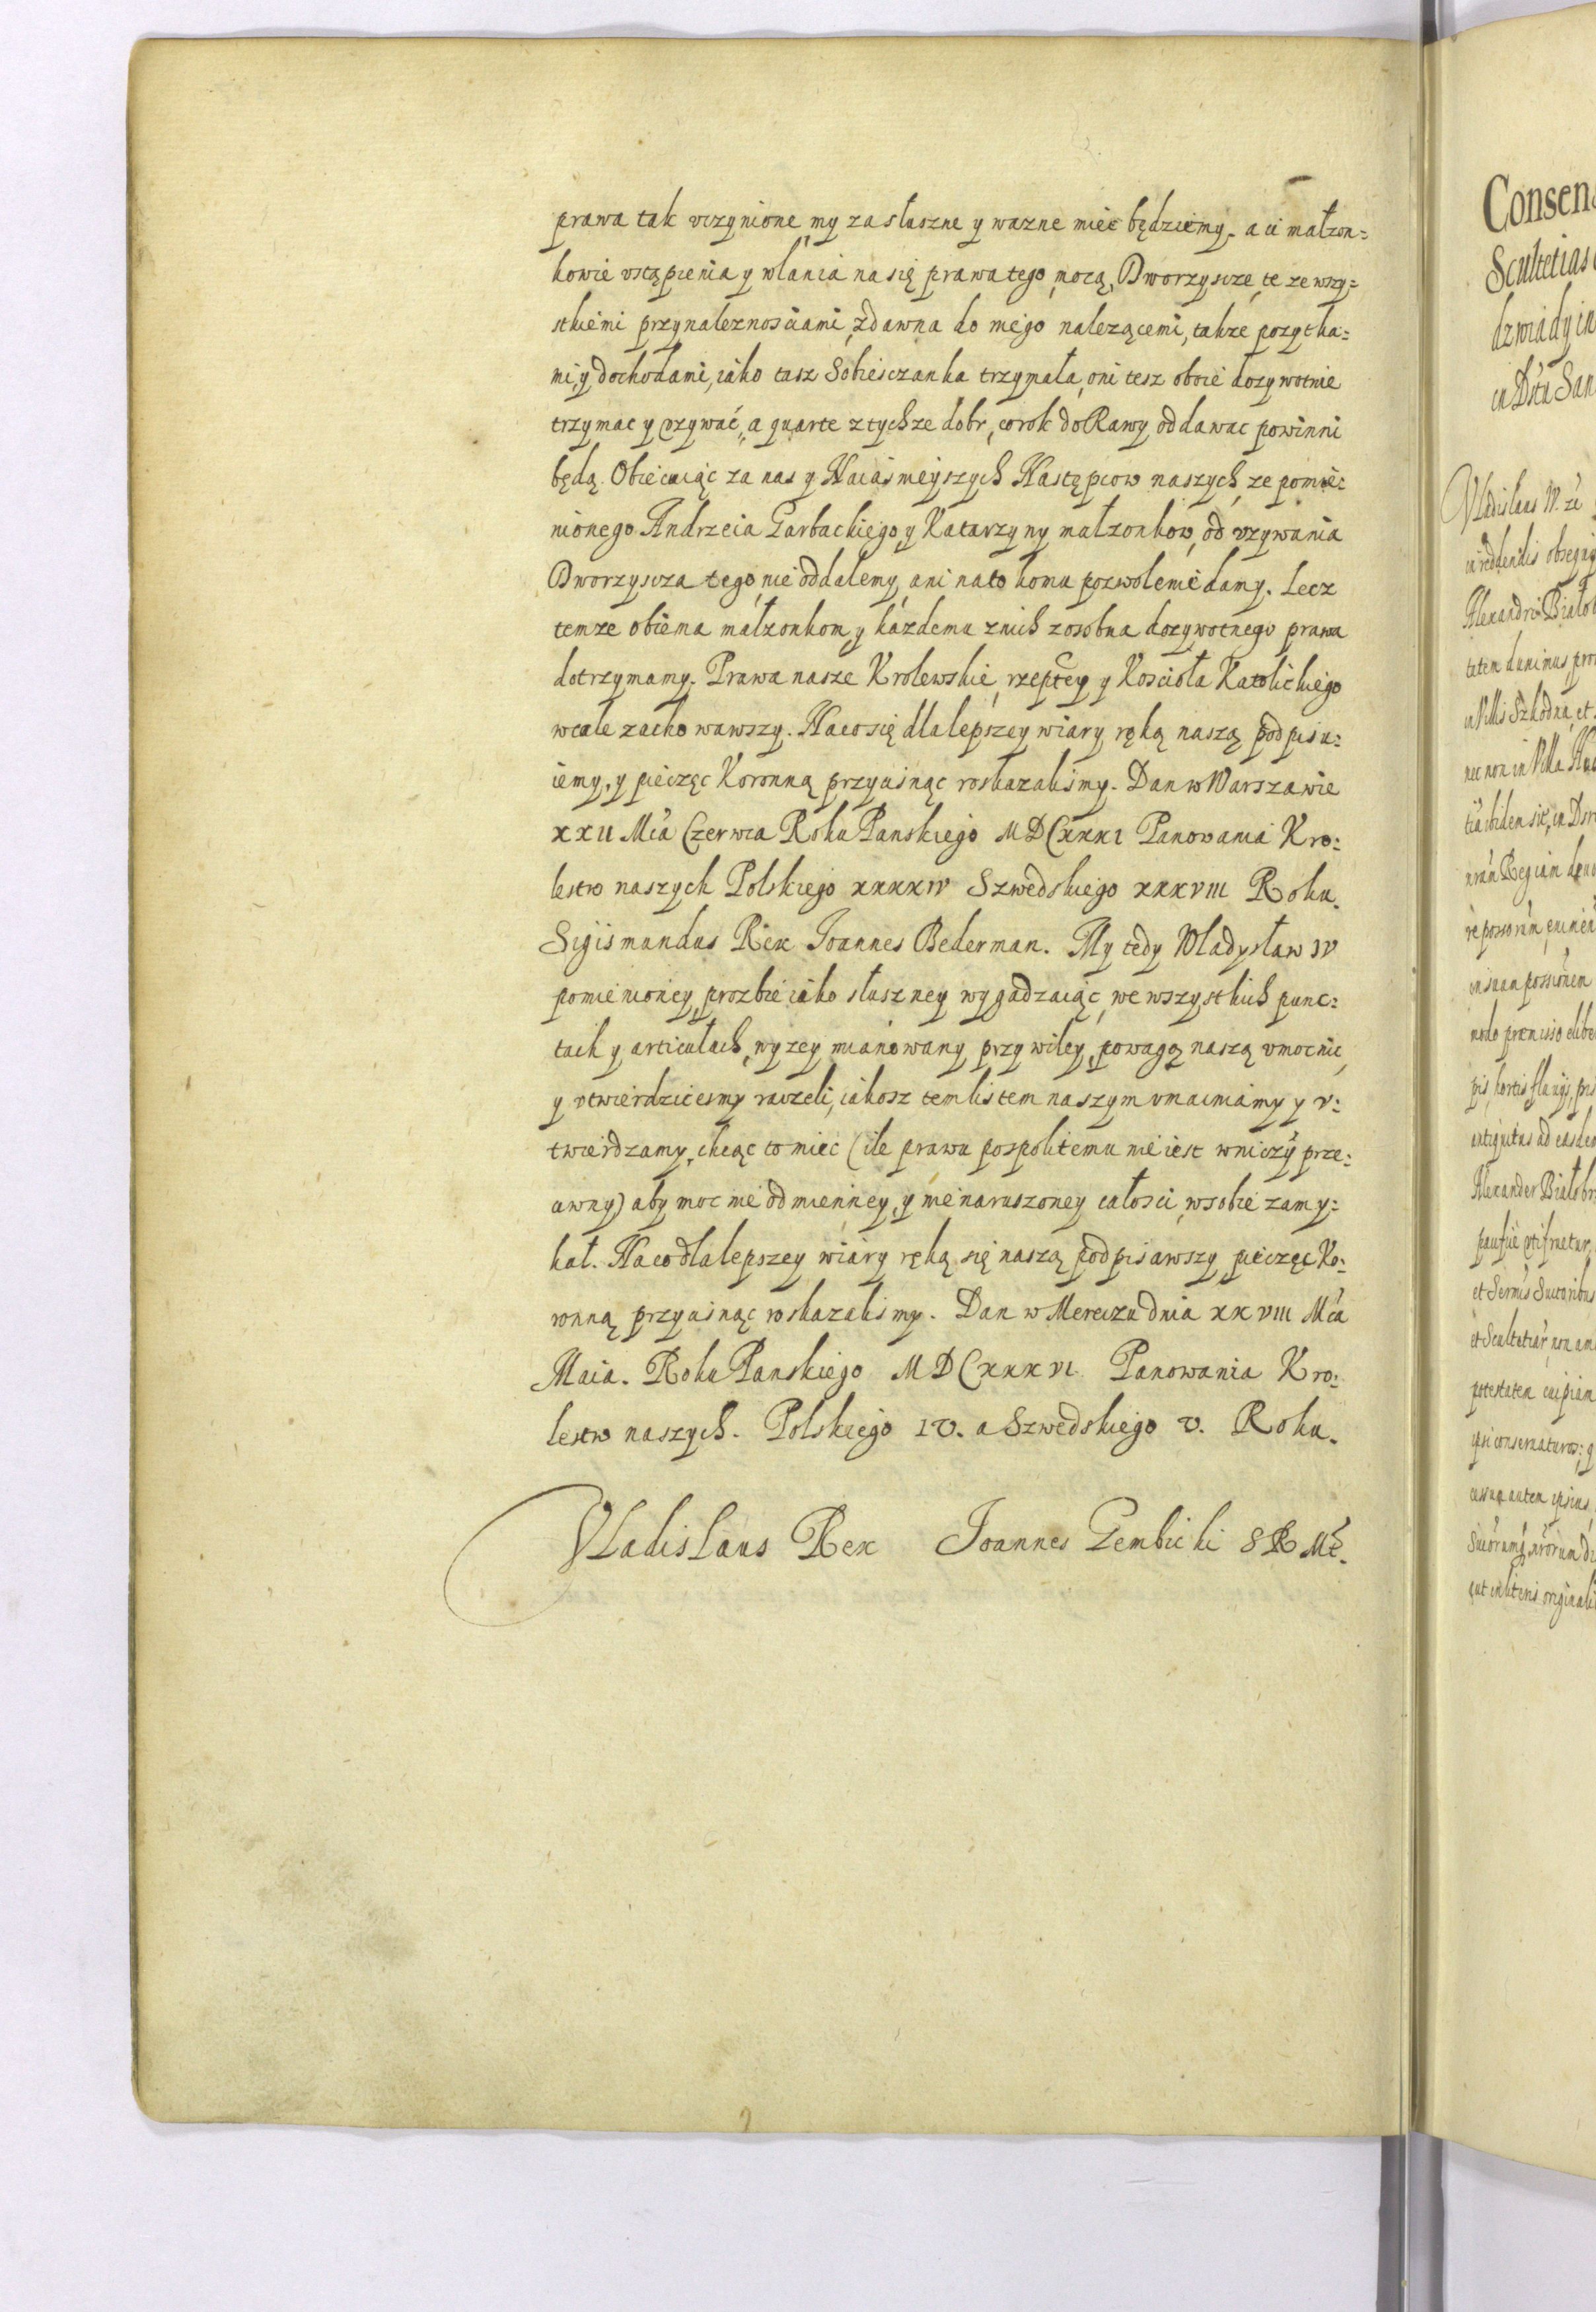 prawa tak vczynione my za słuszne y wazne miec będziemy. a ci małzon=
kowie vstąpienia y wlania na się prawa tego mocą, Dworzyscze te ze wszy=
stkiemi przynaleznosciami, zdawna do niego nalezącemi, takze pozytka=
mi, y dochodami, iako tasz Sobiesczanka trzymała, oni tesz oboie dozywotnie
trzymac y vzywać, a quarte z tychze dobr, co rok do Rawy oddawac powinni
będą. Obiecuiąc za nas y Naiasnieyszych Następcow naszych, ze pomie=
nionego Andrzeia Garbackiego, y Katarzyny małzonkow, od vzywania
Dworzyscza tego, nie oddalemy, ani na to komu pozwolenie damy. Lecz
temze obiema małzonkom y kazdemu z nich zosobna dozywotnego prawa
dotrzymamy. Prawa nasze Krolewskie, rzeptey y Koscioła Katolickiego
wcale zachowawszy. Na co się dla lepszey wiary ręką naszą podpisu=
iemy, y pieczęc Koronną przycisnąc roskazalismy. Dan w Warszawie
XXII Mca Czerwca Roku Panskiego MDCXXXI Panowania Kro=
lestw naszych Polskiego XXXXIV Szwedskiego XXXVIII Roku.
Sigismundus Rex Joannes Bederman. My tedy Władysław IV
pomienioney prozbie iako słuszney wygadzaiąc, we wszystkich punc=
tach y articułach, wyzey mianowany przywiley, powagą naszą vmocnic,
y vtwierdzicesmy raczeli, iakosz tem listem naszym vmacniamy y v=
twierdzamy, chcąc to miec (ile prawu pospolitemu nie iest wniczỹ prze=
ciwny) aby moc nie odmienney, y nienaruszoney całosci, w sobie zamy=
kał. Na co dla lepszey wiary ręką się naszą podpisawszy pieczęc Ko=
ronną przycisnąc roskazalismy. Dan w Mereczu dnia XXVIII Mca
Maia. Roku Panskiego MDCXXXVI Panowania Kro=
lestw naszych. Polskiego IV. a Szwedskiego V. Roku.
Vladislaus Rex Joannes Gembicki S R Mt.
Consen
Scultetias
dzwiady in
in Dstu San
Vladislaus IV. ze
Alexandri Białob
tatem
in Villis Szkodna, et
nec non in Villa
re possorum
in suam possionem
modo præmisso
Alexander Białobr
et Scultetiar non
potestatem